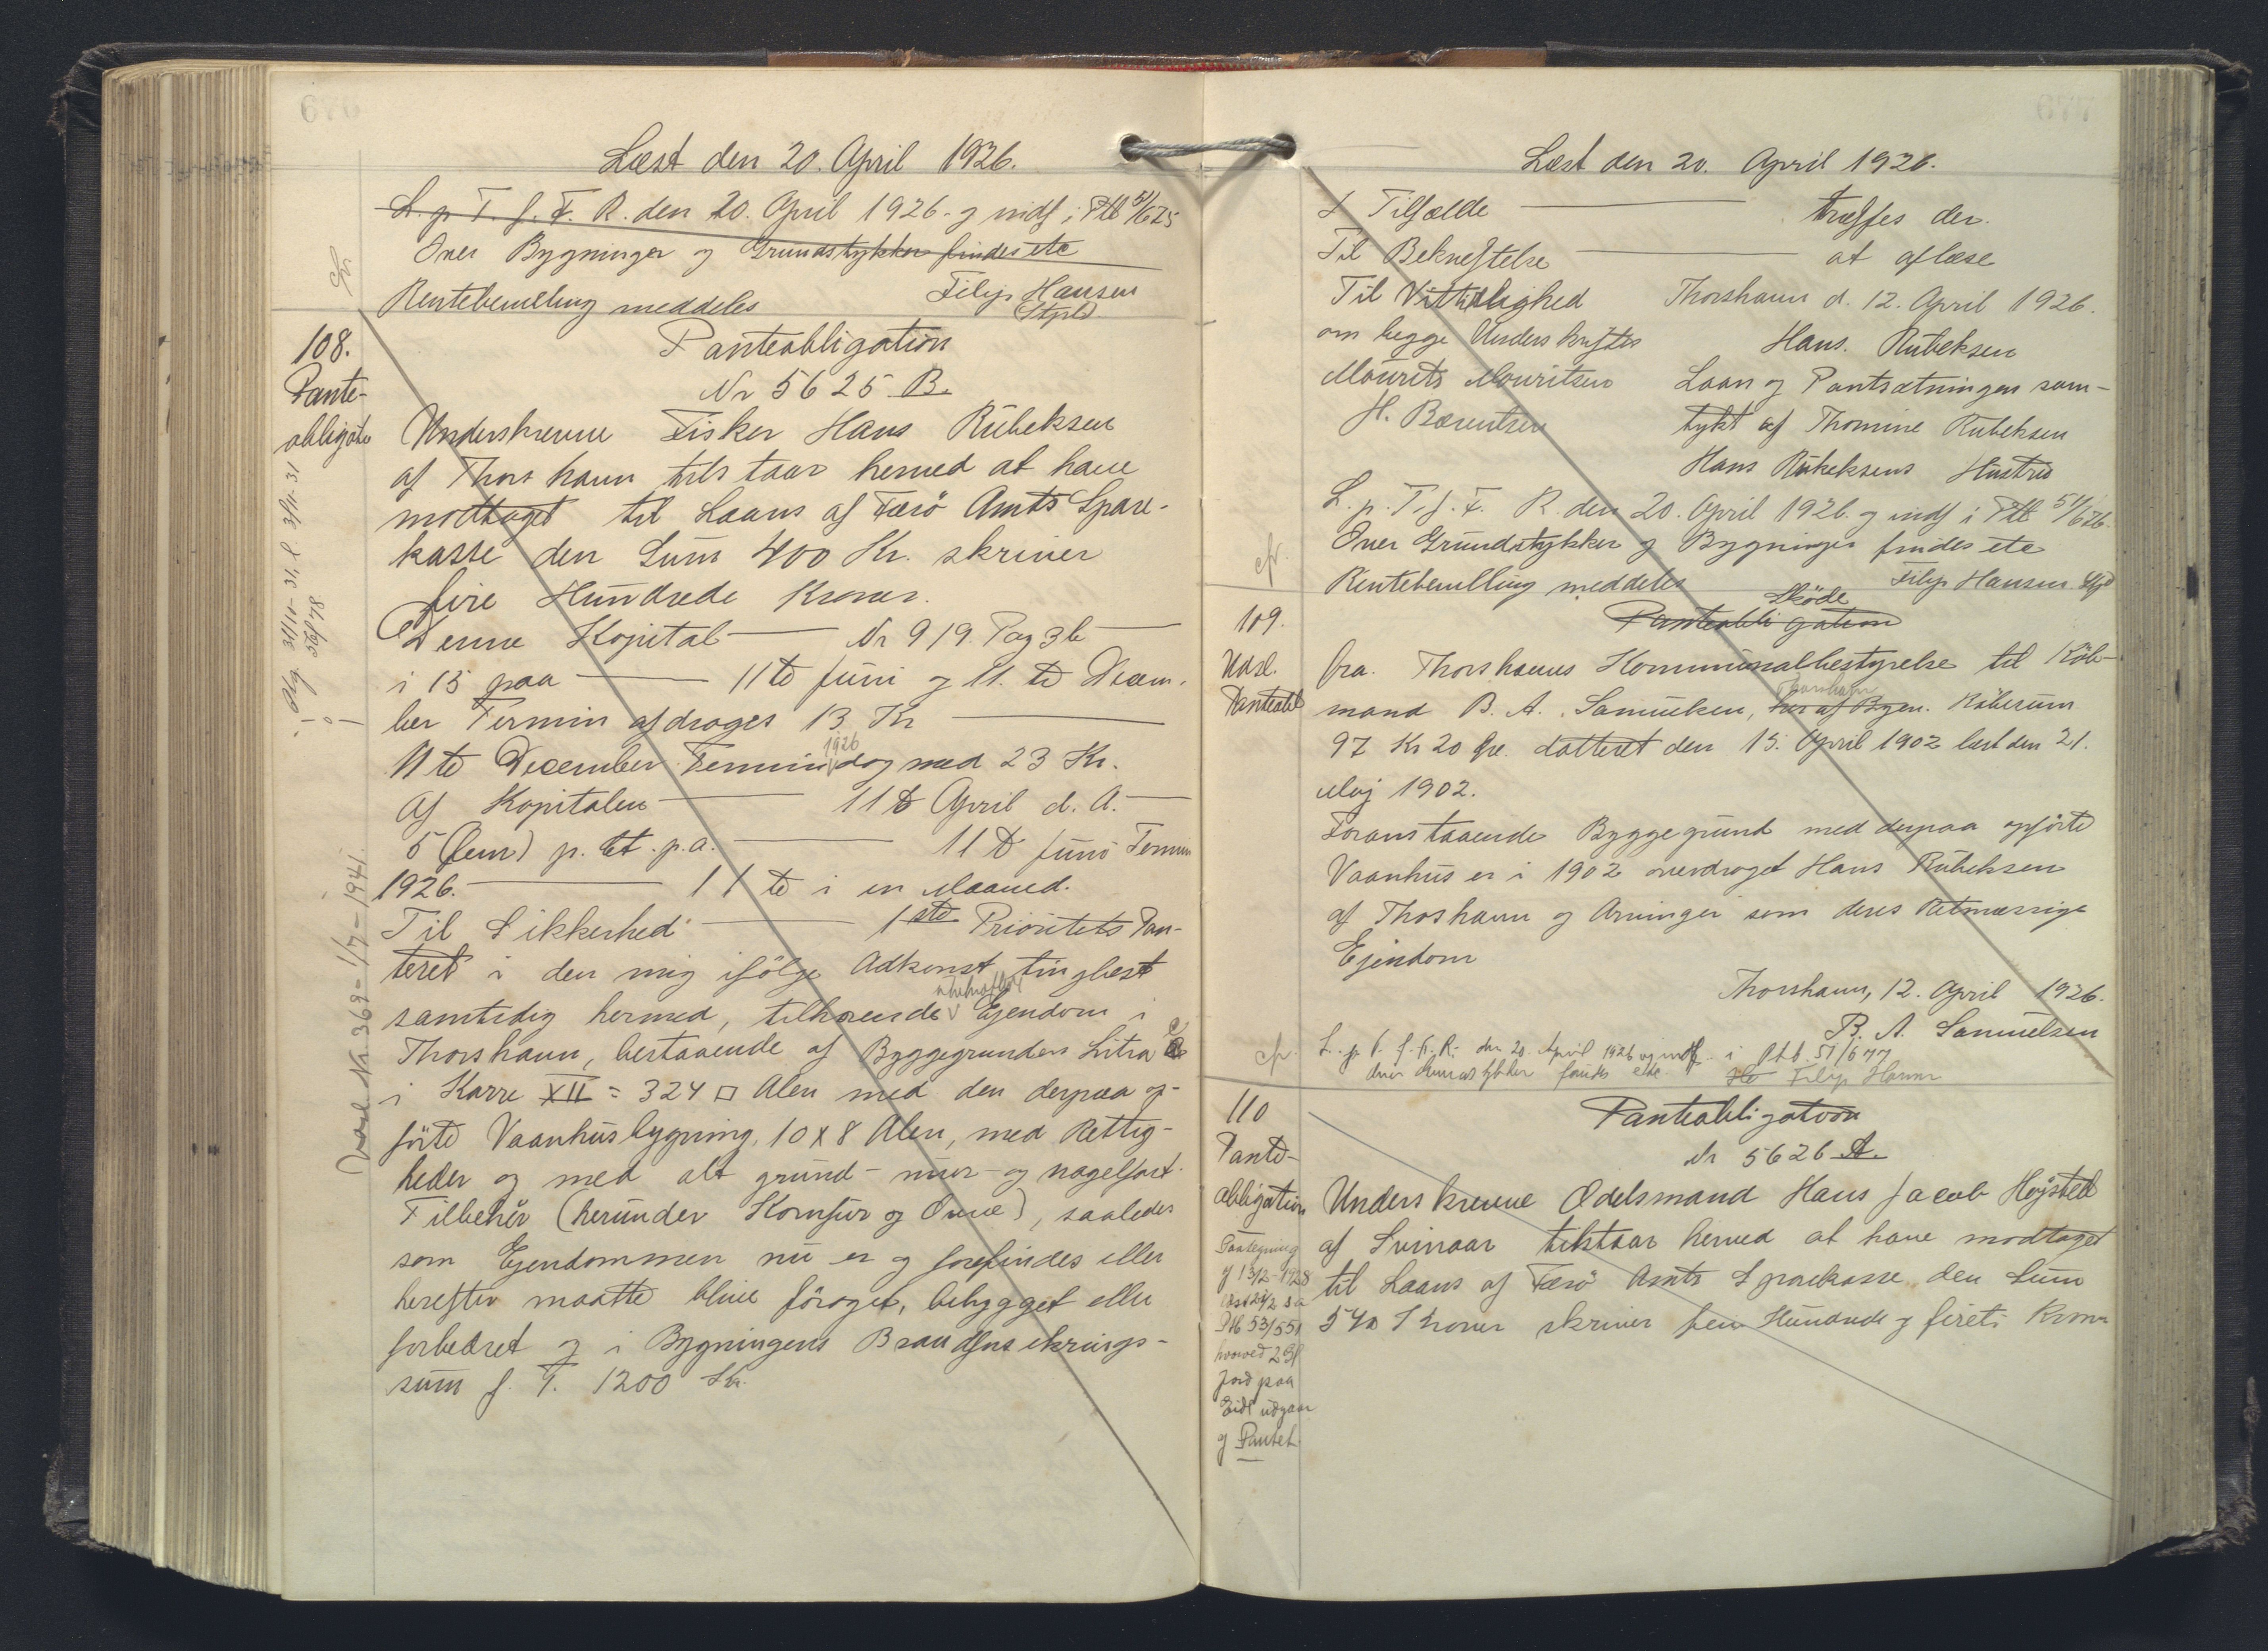 Læst den 20. April 1926.
L. p. T. f. F. R. den 20. April 1926 og indf i Ptb 51/625
Over Bygninger og Grundstykker findes etc
Rentebevilling meddeles Filip Hansen
Stpld
cfr.
108.
Pante-
obligati
Panteobligation
Nr 5625 B.
Underskrevne Fisker Hans Rubeksen
af Thorshavn tilstaar herved at have
modtaget til Laans af Færö Amts Spare-
kasse den Sum 400 Kr. skriver
fire Hundrede Kroner.
Denne Kapital — Nr 919. Pag 36 —
i 15 paa — 11te Juni og 11. te Decem-
ber Termin afdrages 13 Kr —
11te December Termin 1926 dog med 23 Kr.
Af Kapitalen — 11te April d. A. —
5 (fem) p. Ct. p.a. — 11te Juni Termin
1926. — 11te i en Maaned.
Til Sikkerhed — 1ste Prioritets Pan-
teret i den mig ifölge Adkomst tinglæst
samtidig hermed, tilhørende Ejendom i
Thorshavn, bestaaende af Byggegrunden Litra
i Karre XII = 324 □ Alen med den derpaa op-
förte Vaanhusbygning, 10 x 8 Alen, med Rettig-
heder og med alt grund- mur- og nagelfast
Tilbehör (herunder Komfur og Ovne), saaledes
som Ejendommen nu er og forefindes eller
herefter maatte blive foröget, bebygget eller
forbedret og i Bygningens Brandforsikrings-
sum f. T. 1200 Kr.
Læst den 20. April 1926.
I Tilfælde — træffes der.
Til Bekræftelse — at aflæse
Til Vitterlighed Thorshavn d. 12. April 1926.
om begge Underskrifter Hans. Rubeksen
Mourits Mouritsen Laan og Pantsætningen sam-
H. Bærentsen tykt af Thomine Rubeksen
Hans Rubeksens Hustru
L. p. T. f. F. R. den 20. April 1926 og indf i Ptb 51/626.
Over Grundstykker og Bygninger findes etc
cfr.
Rentebevilling meddeles Filip Hansen Stpld
109.
Udsl.
Panteobl
Skøde
Panteobligation
fra. Thorshavns Kommunalbestyrelse til Köb-
mand B. A. Samuelsen, Thorshavn her af Byen. Köbesum
97 Kr 20 Øre. datteret den 15. April 1902 læst den 21.
Maj 1902.
Foranstaaende Byggegrund med derpaa opförte
Vaanhus er i 1902 overdraget Hans Rubeksen
af Thorshavn og Arvinger som deres Retmæssige
Ejendom
Thorshavn, 12. April 1926.
B. A. Samuelsen
cfr.
L. p. T. f. F. R. den 20. April 1926 og indf. i Ptb. 51/677
Over Grundstykker findes etc. Filip Hansen
110
Pante-
obligation
Panteobligation
Nr 5626 A.
Underskrevne Odelsmand Hans Jacob Højsted
af Svinaar tilstaar herved at have modtaget
til Laans af Færö Amts Sparekasse den Sum
540 Kroner skriver fem Hundrede og fireti Kroner
Paategning
af 13/2-1928
læst 21/2 s a
Ptb 53/551
hvorved 2 Gl
Jord paa
Eidi udgaar
af Pantet